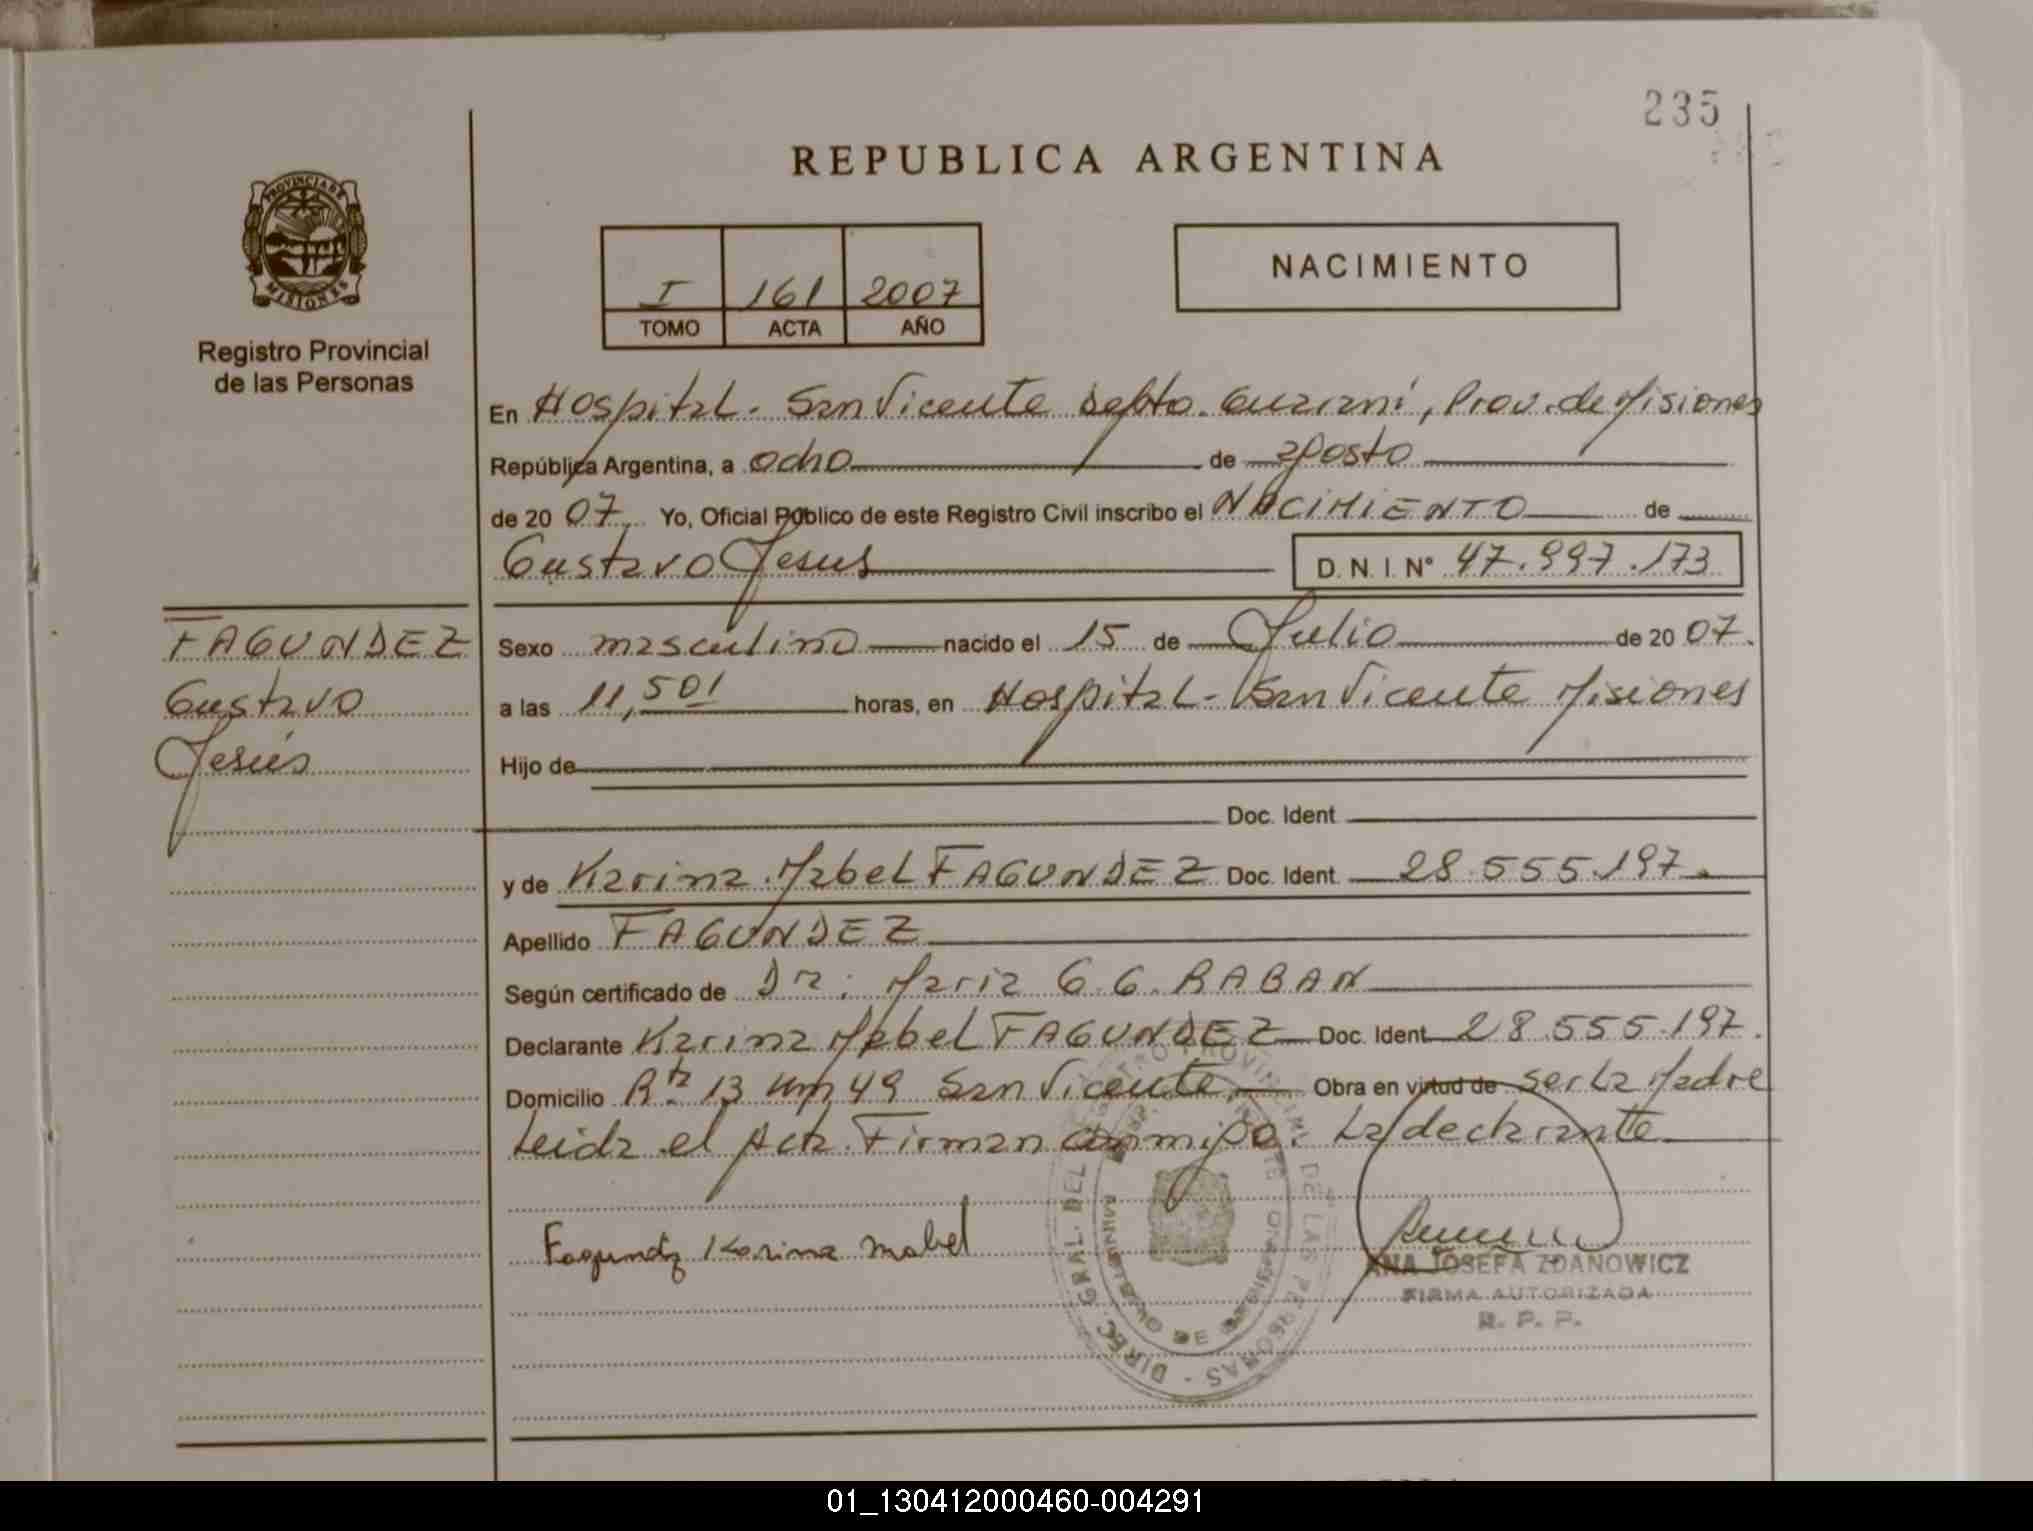 235
REPUBLICA ARGENTINA
PROVINCIA DE
MISIONES
Registro Provincial
de las Personas
I 161 2007
TOMO ACTA AÑO
NACIMIENTO
En Hospital - San Vicente Depto. Guarani, Prov. de Misiones
República Argentina, a ocho de agosto
de 2007. Yo, Oficial Público de este Registro Civil inscribo el NACIMIENTO de
Gustavo Jesus D.N.I. N° 47.997.173
FAGUNDEZ
Gustavo
Jesús
Sexo masculino nacido el 15 de Julio de 2007.
a las 11,50 horas, en Hospital - San Vicente Misiones
Hijo de
Doc. Ident.
y de Karina Mabel FAGUNDEZ Doc. Ident. 28.555.197.
Apellido FAGUNDEZ
Según certificado de Dra: Maria G. G. RABAN
Declarante Karina Mabel FAGUNDEZ Doc. Ident. 28.555.197.
Domicilio Rta. 13 Km 49 San Vicente, Obra en virtud de ser La Madre
Leida el Acta Firman conmigo: La declarante
Fagundez Karina Mabel
DIREC. GRAL. DEL REGISTRO PROVINCIAL DE LAS PERSONAS
ANA JOSEFA ZDANOWICZ
FIRMA AUTORIZADA
R. P. P.
01_130412000460-004291